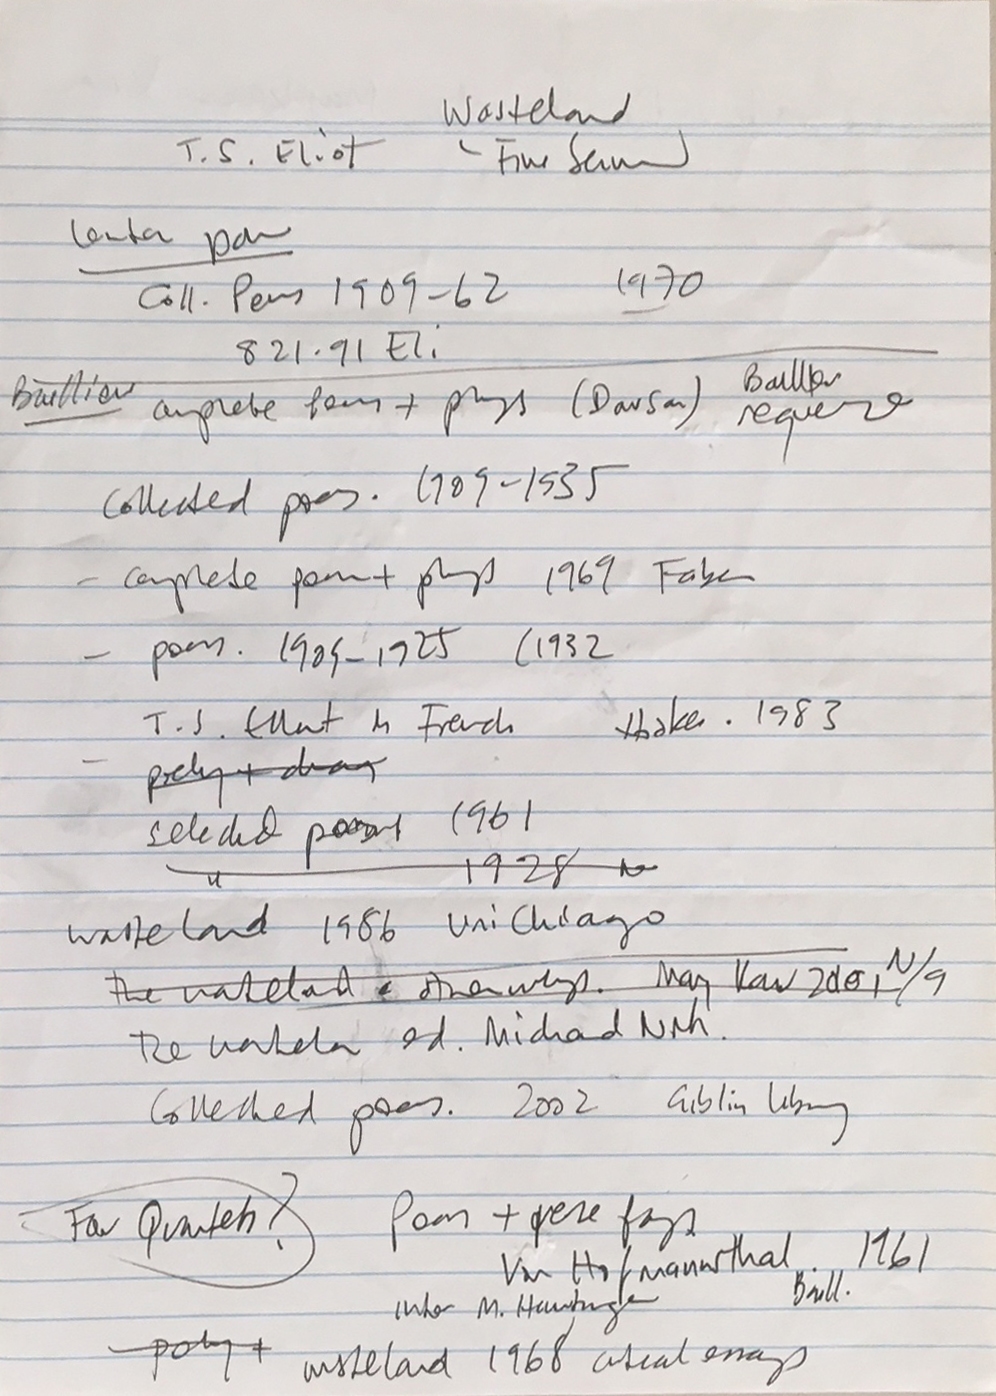 Wasteland
T.S. Eliot - Fire Sermon
Coll. Poems 1909-62 1970
821.91 Eli
Baillieu complete poems + plays (Dawson) Baillieu
Collected poems. 1909-1935
- complete poems + plays 1969 Faber
- poems. 1909-1925 (1932
T.S. Eliot in French 1983
- poetry + drama
selected poems 1961
" 1928
wasteland 1986 Uni Chicago
The wasteland & other 
The wasteland ed. Michael North.
Collected poems. 2002 Giblin library
Four Quartets? Poems + verse plays
Von Hofmannsthal. 1961
intro M. Hamburger Baill.
poetry + wasteland 1968 critical essays